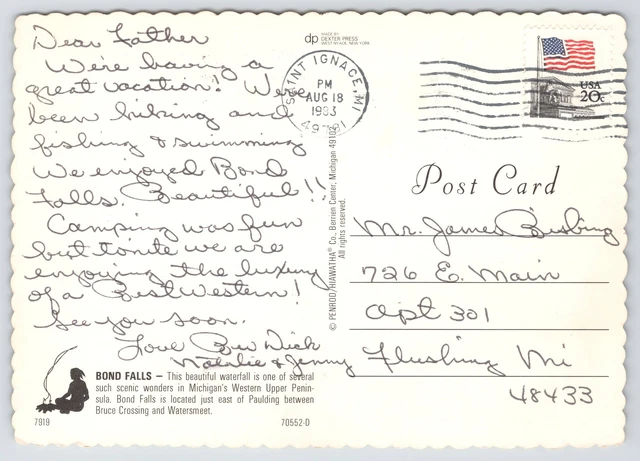 Dear Father
We're having a
great vacation! We've
been hiking and
fishing & swimming
We enjoyed Bond
Falls. Beautiful!!
Camping was fun
but tonite we are
enjoying the luxury
of a Best Western!
See you soon.
Love Bev Dick
Natalie & Jenny
BOND FALLS — This beautiful waterfall is one of several
such scenic wonders in Michigan's Western Upper Penin-
sula. Bond Falls is located just east of Paulding between
Bruce Crossing and Watersmeet.
7919
70552-D
dp
MADE BY
DEXTER PRESS
WEST NYACK, NEW YORK
© PENROD/HIAWATHA® Co., Berrien Center, Michigan 49102
All rights reserved.
SAINT IGNACE, MI
PM
AUG 18
1983
49781
USA
20c
Post Card
Mr. James Bisbing
726 E. Main
Apt 301
Flushing Mi
48433